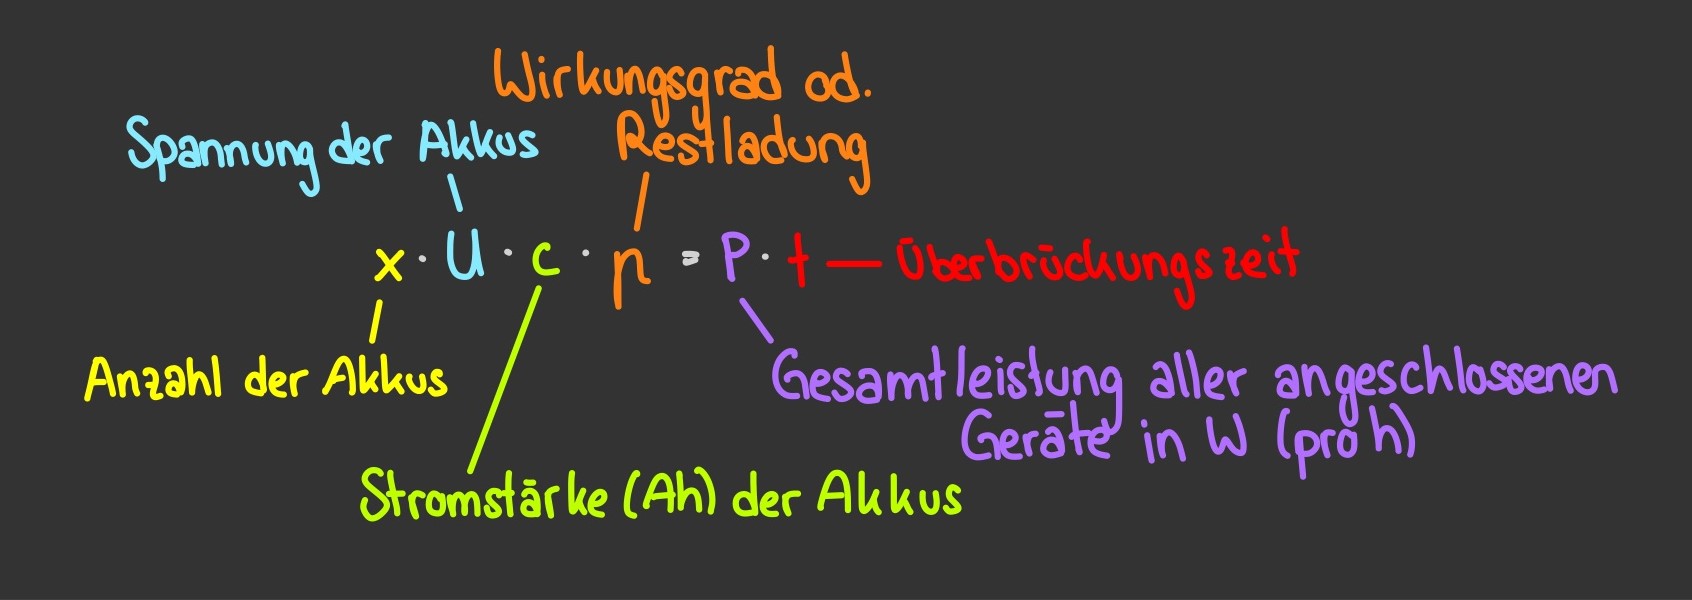 Wirkungsgrad od.
Restladung
Spannung der Akkus
x · U · c · η = P · t — Überbrückungszeit
Anzahl der Akkus
Gesamtleistung aller angeschlossenen
Geräte in W (pro h)
Stromstärke (Ah) der Akkus